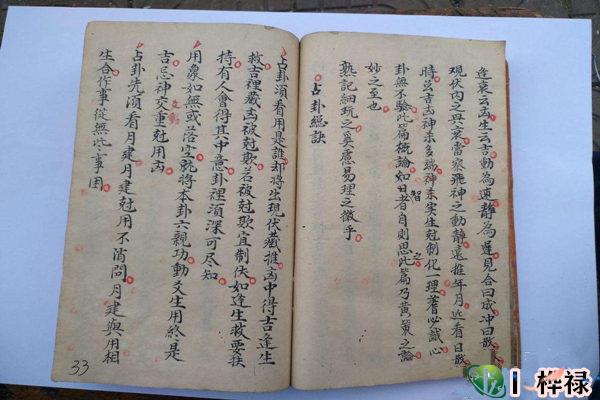 逢衰云凶生云吉動為速靜為遲見合曰成冲曰散
現伏內之興衰當察飛神之動靜遠推年月近看日
時玄吉凶神未多端神未实生尅制化一理著必誠心
卦無不驗此篇概論如日智者自則思之此篇乃黄策之論
妙之至也
熟記細玩之奚慮易理之微乎
占卦總訣
占卦須看用是誰却將出現伏藏推凶中得吉逢生
救吉裡藏凶被尅欺若被尅欺宜制伏如逢生救要扶
持有人會得其中意卦裡須深可尽知
用象如無或落空就將本卦六親功動爻生用終是
吉忌神交重尅用凶
占卦先須看月建月建尅用不消問月建與用相
生合作事從無些事困
33
梓禄